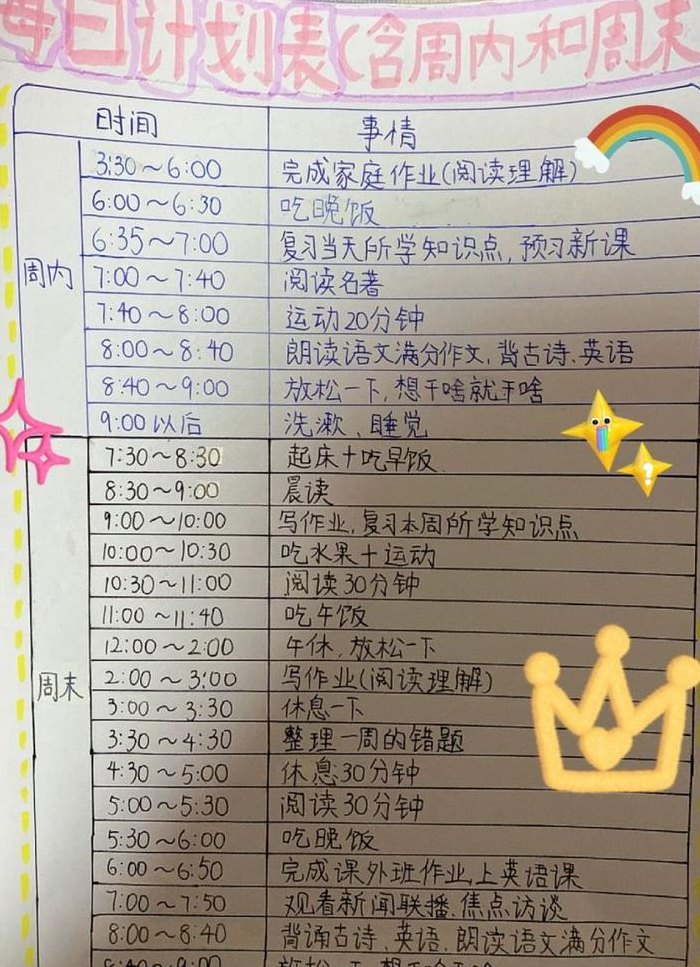 每日计划表(含周内和周末
时间 事情
周内
3:30~6:00 完成家庭作业(阅读理解)
6:00~6:30 吃晚饭
6:35~7:00 复习当天所学知识点,预习新课
7:00~7:40 阅读名著
7:40~8:00 运动20分钟
8:00~8:40 朗读语文满分作文、背古诗、英语
8:40~9:00 放松一下,想干啥就干啥
9:00以后 洗漱、睡觉
周末
7:30~8:30 起床+吃早饭
8:30~9:00 晨读
9:00~10:00 写作业,复习本周所学知识点
10:00~10:30 吃水果+运动
10:30~11:00 阅读30分钟
11:00~11:40 吃午饭
12:00~2:00 午休,放松一下
2:00~3:00 写作业(阅读理解)
3:00~3:30 休息一下
3:30~4:30 整理一周的错题
4:30~5:00 休息30分钟
5:00~5:30 阅读30分钟
5:30~6:00 吃晚饭
6:00~6:50 完成课外班作业,上英语课
7:00~7:50 观看新闻联播、焦点访谈
8:00~8:40 背诵古诗、英语、朗读语文满分作文